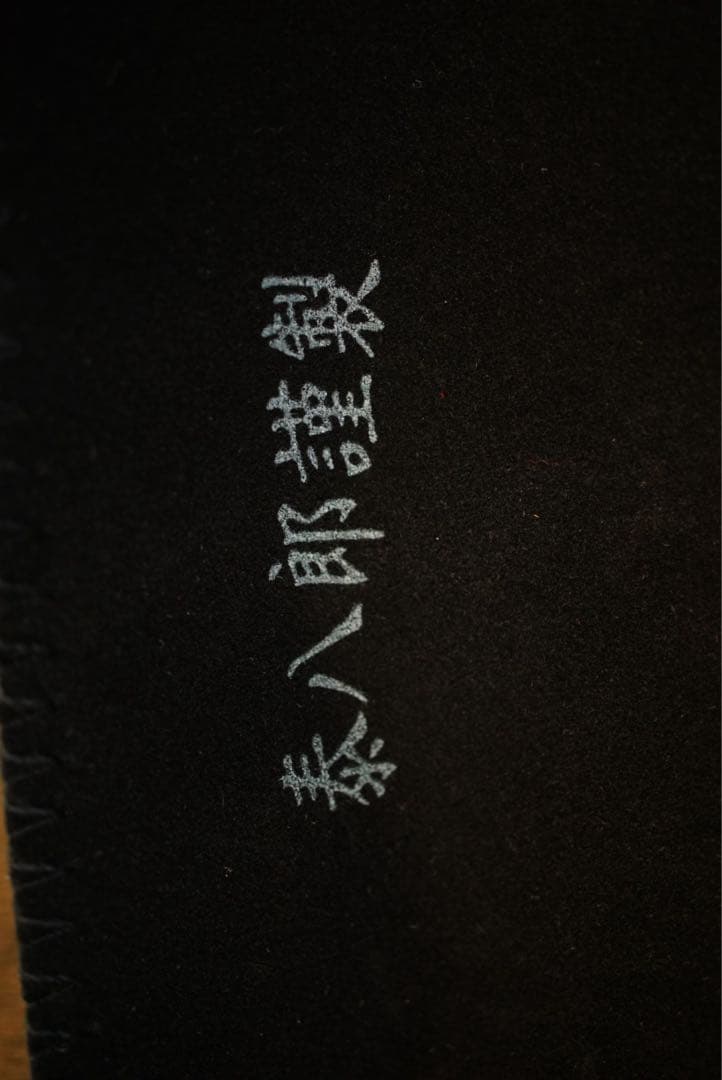 泰八郎謹製